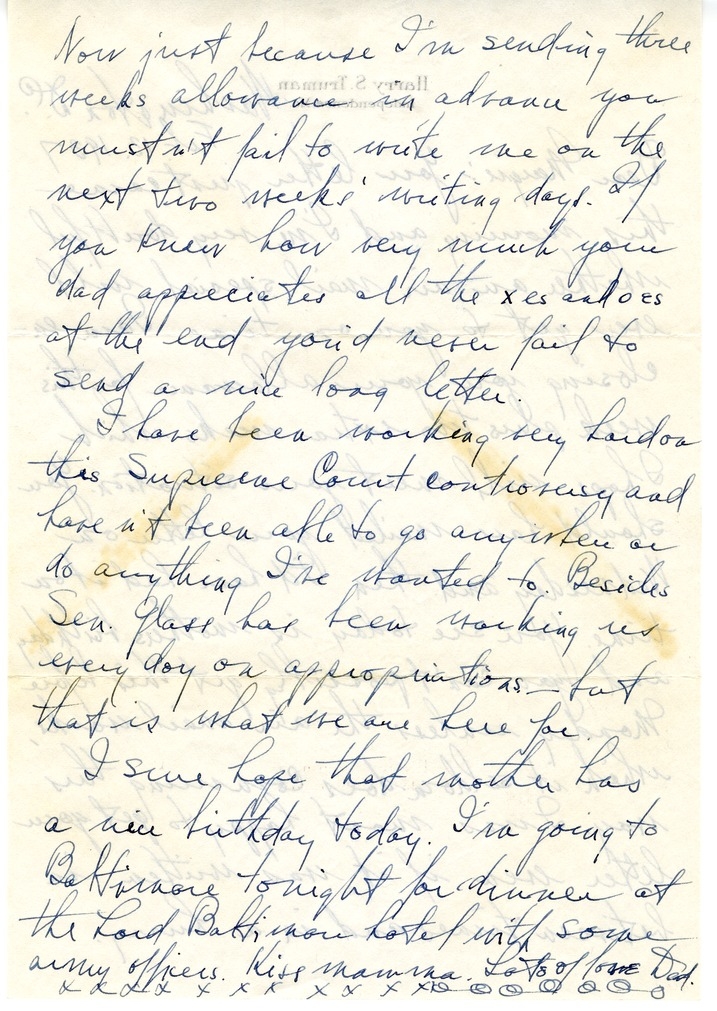 Now just because I'm sending three
Harry S. Truman
weeks allowance in advance you
mustn't fail to write me on the
next two weeks' writing days. If
you knew how very much your
dad appreciates all the xes and oes
at the end you'd never fail to
send a nice long letter.
I have been working very hard on
this Supreme Court controversy and
haven't been able to go anywhere or
do anything I've wanted to. Besides
Sen. Glass has been working us
every day on appropriations — but
that is what we are here for.
I sure hope that mother has
a nice birthday today. I'm going to
Baltimore tonight for dinner at
the Lord Baltimore hotel with some
army officers. Kiss mamma. Lots of love Dad.
x x x x x x x x x x x x o o o o o o o o